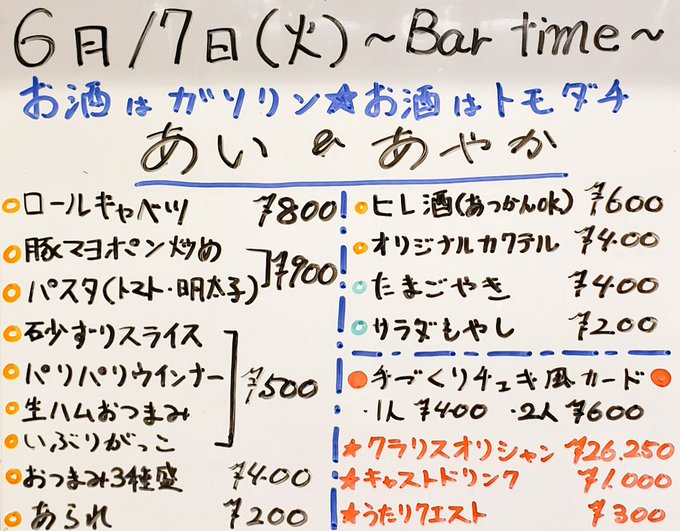 6月17日(火)~Bar time~
お酒はガソリン★お酒はトモダチ
あい&あやか
ロールキャベツ ¥800
豚マヨポン炒め
パスタ(トマト・明太子) ¥900
砂ずりスライス
パリパリウインナー
生ハムおつまみ
いぶりがっこ
¥500
おつまみ3種盛 ¥400
あられ ¥200
ヒレ酒(あつかんok) ¥600
オリジナルカクテル ¥400
たまごやき ¥400
サラダもやし ¥200
手づくりチェキ風カード
・1人 ¥400 ・2人 ¥600
★クラリスオリシャン ¥26.250
★キャストドリンク ¥1.000
★うたリクエスト ¥300